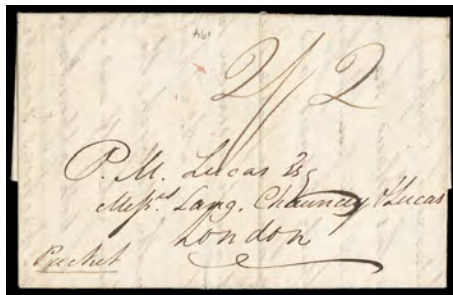 2/2
P. M. Lucas Esq
Mess.rs Lang, Chauncey & Lucas
London
Packet